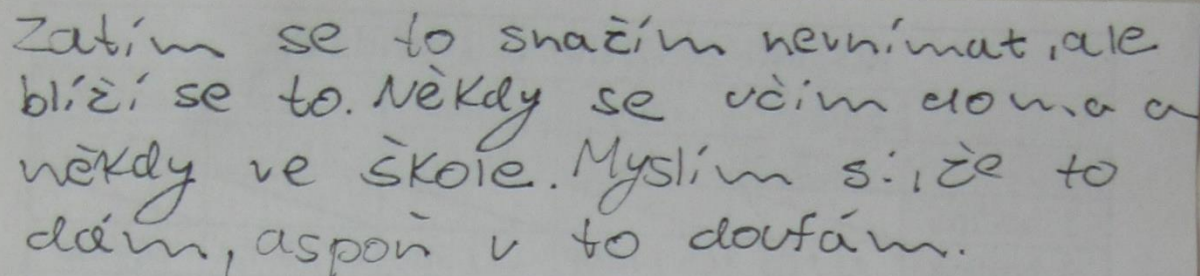 Zatím se to snažím nevnímat, ale
blíží se to. Někdy se učím doma a
někdy ve škole. Myslím si, že to
dám, aspoň v to doufám.